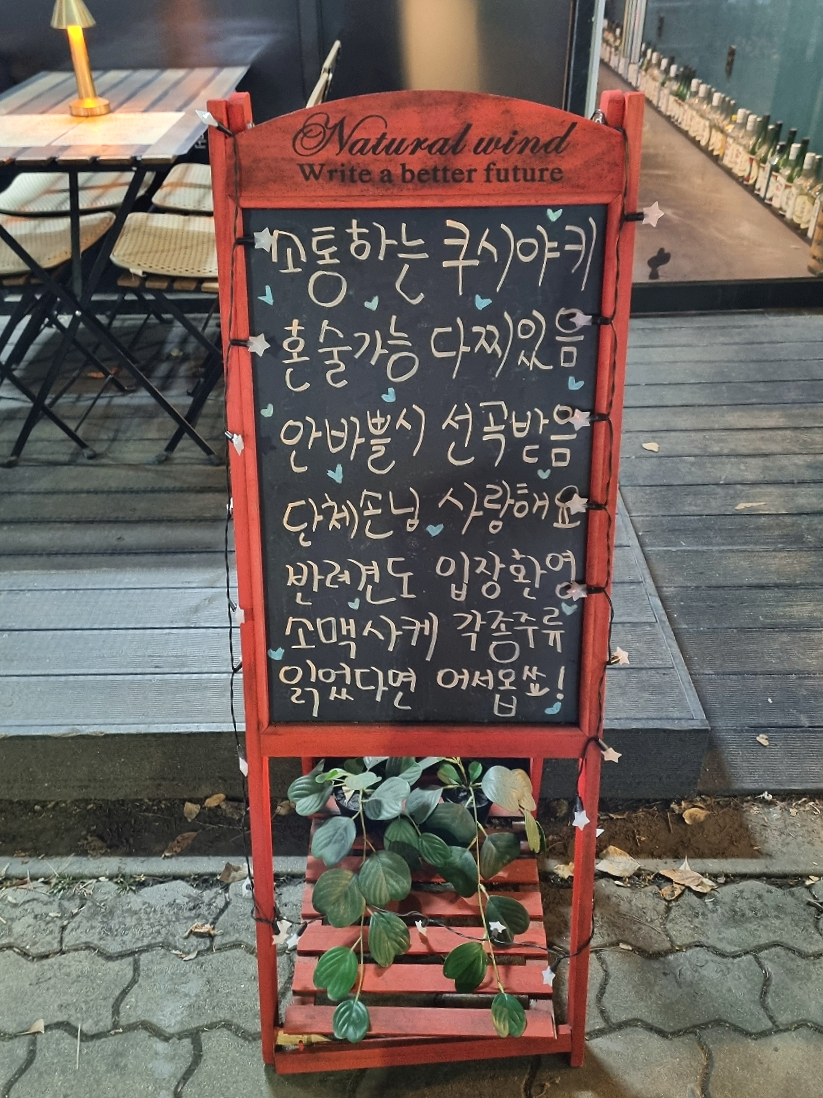 Natural wind
Write a better future
소통하는 쿠시야키
혼술가능 다찌있음
안바쁠시 선곡받음
단체손님 사랑해요
반려견도 입장환영
소맥사케 각종주류
읽었다면 어서옵쑈!